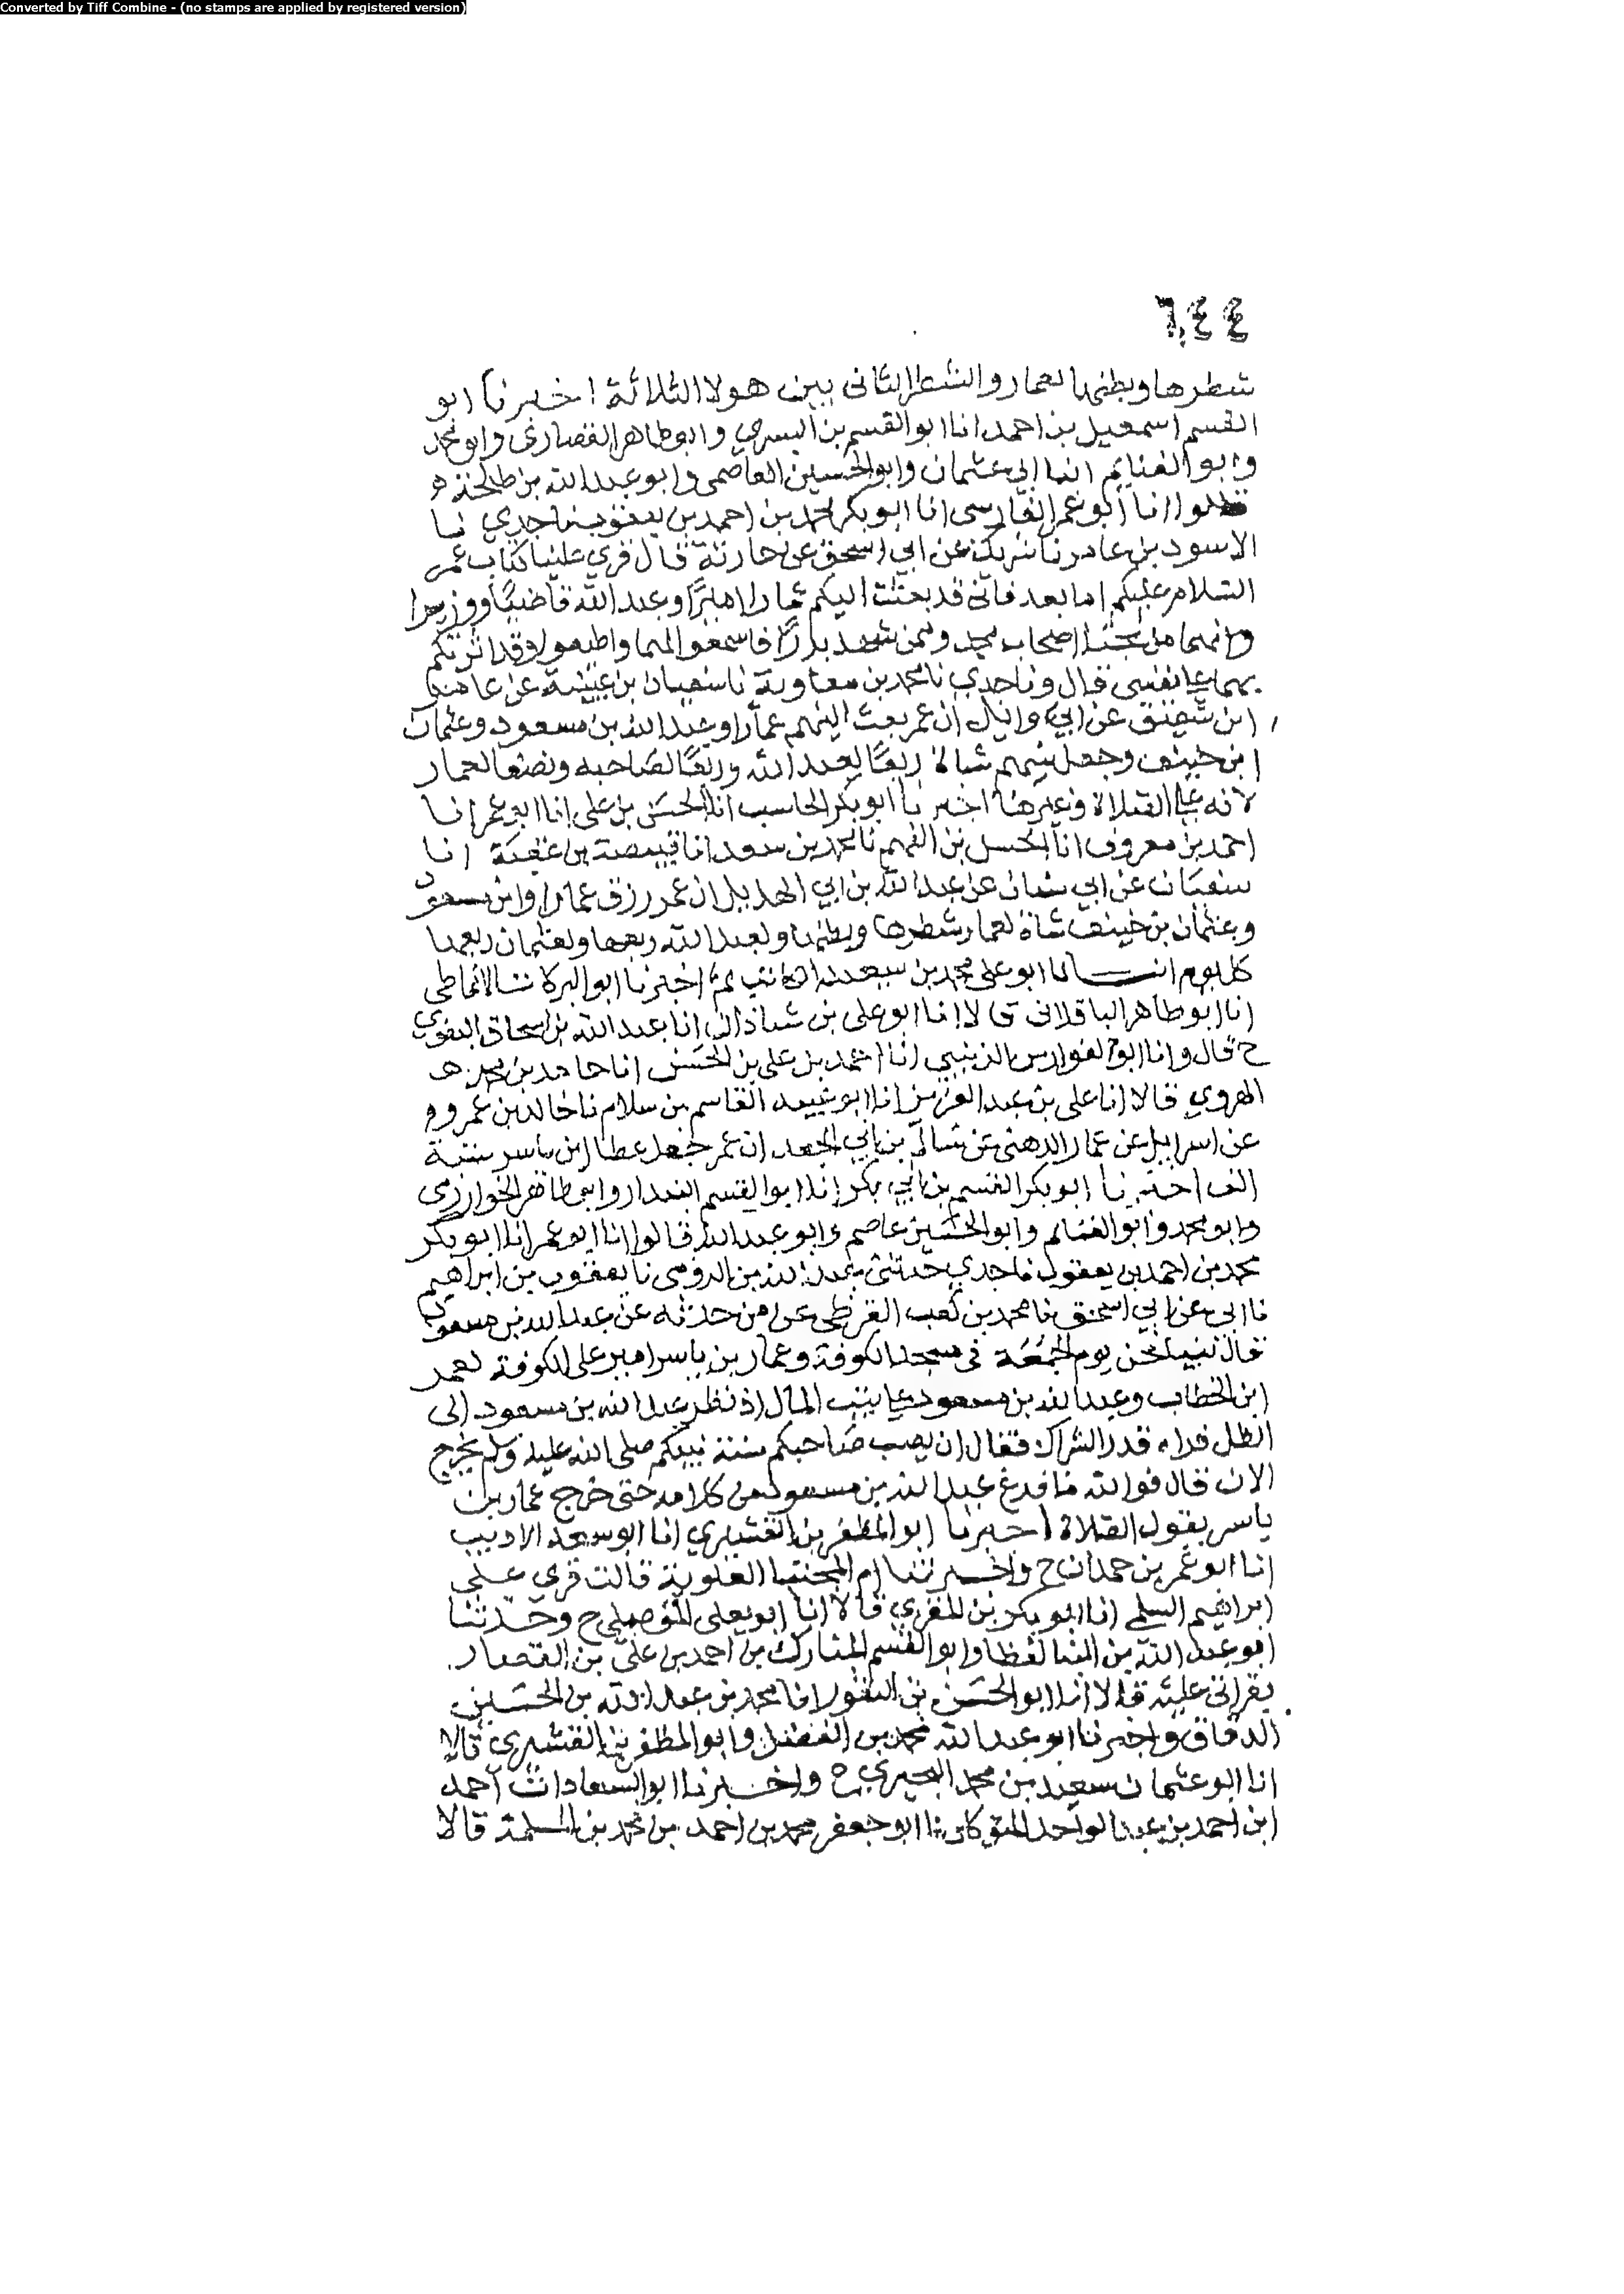 Converted by Tiff Combine - (no stamps are applied by registered version)
٦٤٤
شطرها وبطنها لعمار والشطر الثانى بين هولا الثلاثة اخبرنا ابو
القسم اسمعيل بن احمد انا ابو القسم بن البسري وابو طاهر القصارى وابو محمد
وابو الغنايم ابنا ابي عثمان وابو الحسين العاصمى وابو عبد الله بن طلحة
قالوا انا ابو عمر الفارسى انا ابو بكر محمد بن احمد بن يعقوب نا جدي نا
الاسود بن عامر نا شريك عن ابي اسحق عن حارثة قال قري علينا كتاب عمر
السلام عليكم اما بعد فانى قد بعثت اليكم عمارا اميرا وعبد الله قاضيا ووزيرا
وانهما من اصحاب محمد وممن شهد بدرا فاسمعوا لهما واطيعوا وقد اثرتكم
بهما على نفسى قال ونا جدي نا محمد بن معاوية نا سفيان بن عيينة عن عامر
ابن شقيق عن ابي وايل ان عمر بعث اليهم عمارا وعبد الله بن مسعود وعثمان
ابن حنيف وجعل بينهم شاة ربعا لعبد الله وربعا لصاحبه ونصفا لعمار
لانه على الصلاة وغيرها اخبرنا ابو بكر الحاسب انا الحسن بن على انا ابو عمر انا
احمد بن معروف انا الحسين بن الفهم نا محمد بن سعد انا قبيصة بن عقبة انا
سفيان عن ابي سنان عن عبد الله بن ابي الهذيل ان عمر رزق عمارا وابن مسعود
وعثمان بن حنيف شاة لعمار شطرها وبطنها ولعبد الله ربعها ولعثمان ربعها
كل يوم ابو على محمد بن سعيد اخبرنا ابو البركات الانماطى
انا ابو طاهر الباقلانى قالا انا ابو على بن شاذان انا عبد الله بن اسحاق البغوي
ح قال وانا ابو الفوارس الزينبي انا احمد بن على بن الحسن انا حامد بن محمد
الهروي قالا انا على بن عبد العزيز انا ابو عبيد القاسم بن سلام نا خالد بن عمرو
عن اسرايل عن عمار الدهنى عن سالم بن ابي الجعد ان عمر جعل عطا ابن ياسر ستة
الف اخبرنا ابو بكر القسم بن ابي بكر انا ابو القسم البندار وابو طاهر الخوارزمى
وابو محمد وابو الغنايم وابو الحسين عاصم وابو عبد الله قالوا انا ابو عمر انا ابو بكر
محمد بن احمد بن يعقوب نا جدي حدثنى عبد الله بن الرومى نا يعقوب بن ابراهيم
نا ابى عن ابي اسحق نا محمد بن كعب القرظى عن من حدثه عن عبد الله بن مسعود
قال بينما نحن يوم الجمعة فى مسجد الكوفة وعمار بن ياسر امير على الكوفة لعمر
ابن الخطاب وعبد الله بن مسعود على بيت المال اذ نظر عبد الله بن مسعود الى
الظل فراه قدر الشراك فقال ان يصب صاحبكم سنة نبيكم صلى الله عليه وسلم يخرج
الان قال فوالله ما فرغ عبد الله بن مسعود من كلامه حتى خرج عمار بن
ياسر يقول الصلاة اخبرنا ابو المظفر بن القشيري انا ابو سعد الاديب
انا ابو عمر بن حمدان ح واخبرتنا ام المجتبا العلوية قالت قري على
ابراهيم السلمي انا ابو بكر بن المقري قالا انا ابو يعلى الموصلى ح وحدثنا
ابو عبد الله بن البنا لفظا وابو القسم المبارك بن احمد بن على بن القصار
بقراتى عليه قالا انا ابو الحسن بن النقور انا محمد بن عبد الله بن الحسين
الدقاق واخبرنا ابو عبد الله محمد بن الفضل وابو المظفر بن القشيري قالا
انا ابو عثمان سعيد بن محمد البحيري ح واخبرنا ابو السعادات احمد
ابن احمد بن عبد الواحد المتوكلى انا ابو جعفر محمد بن احمد بن محمد بن المسلمة قالا